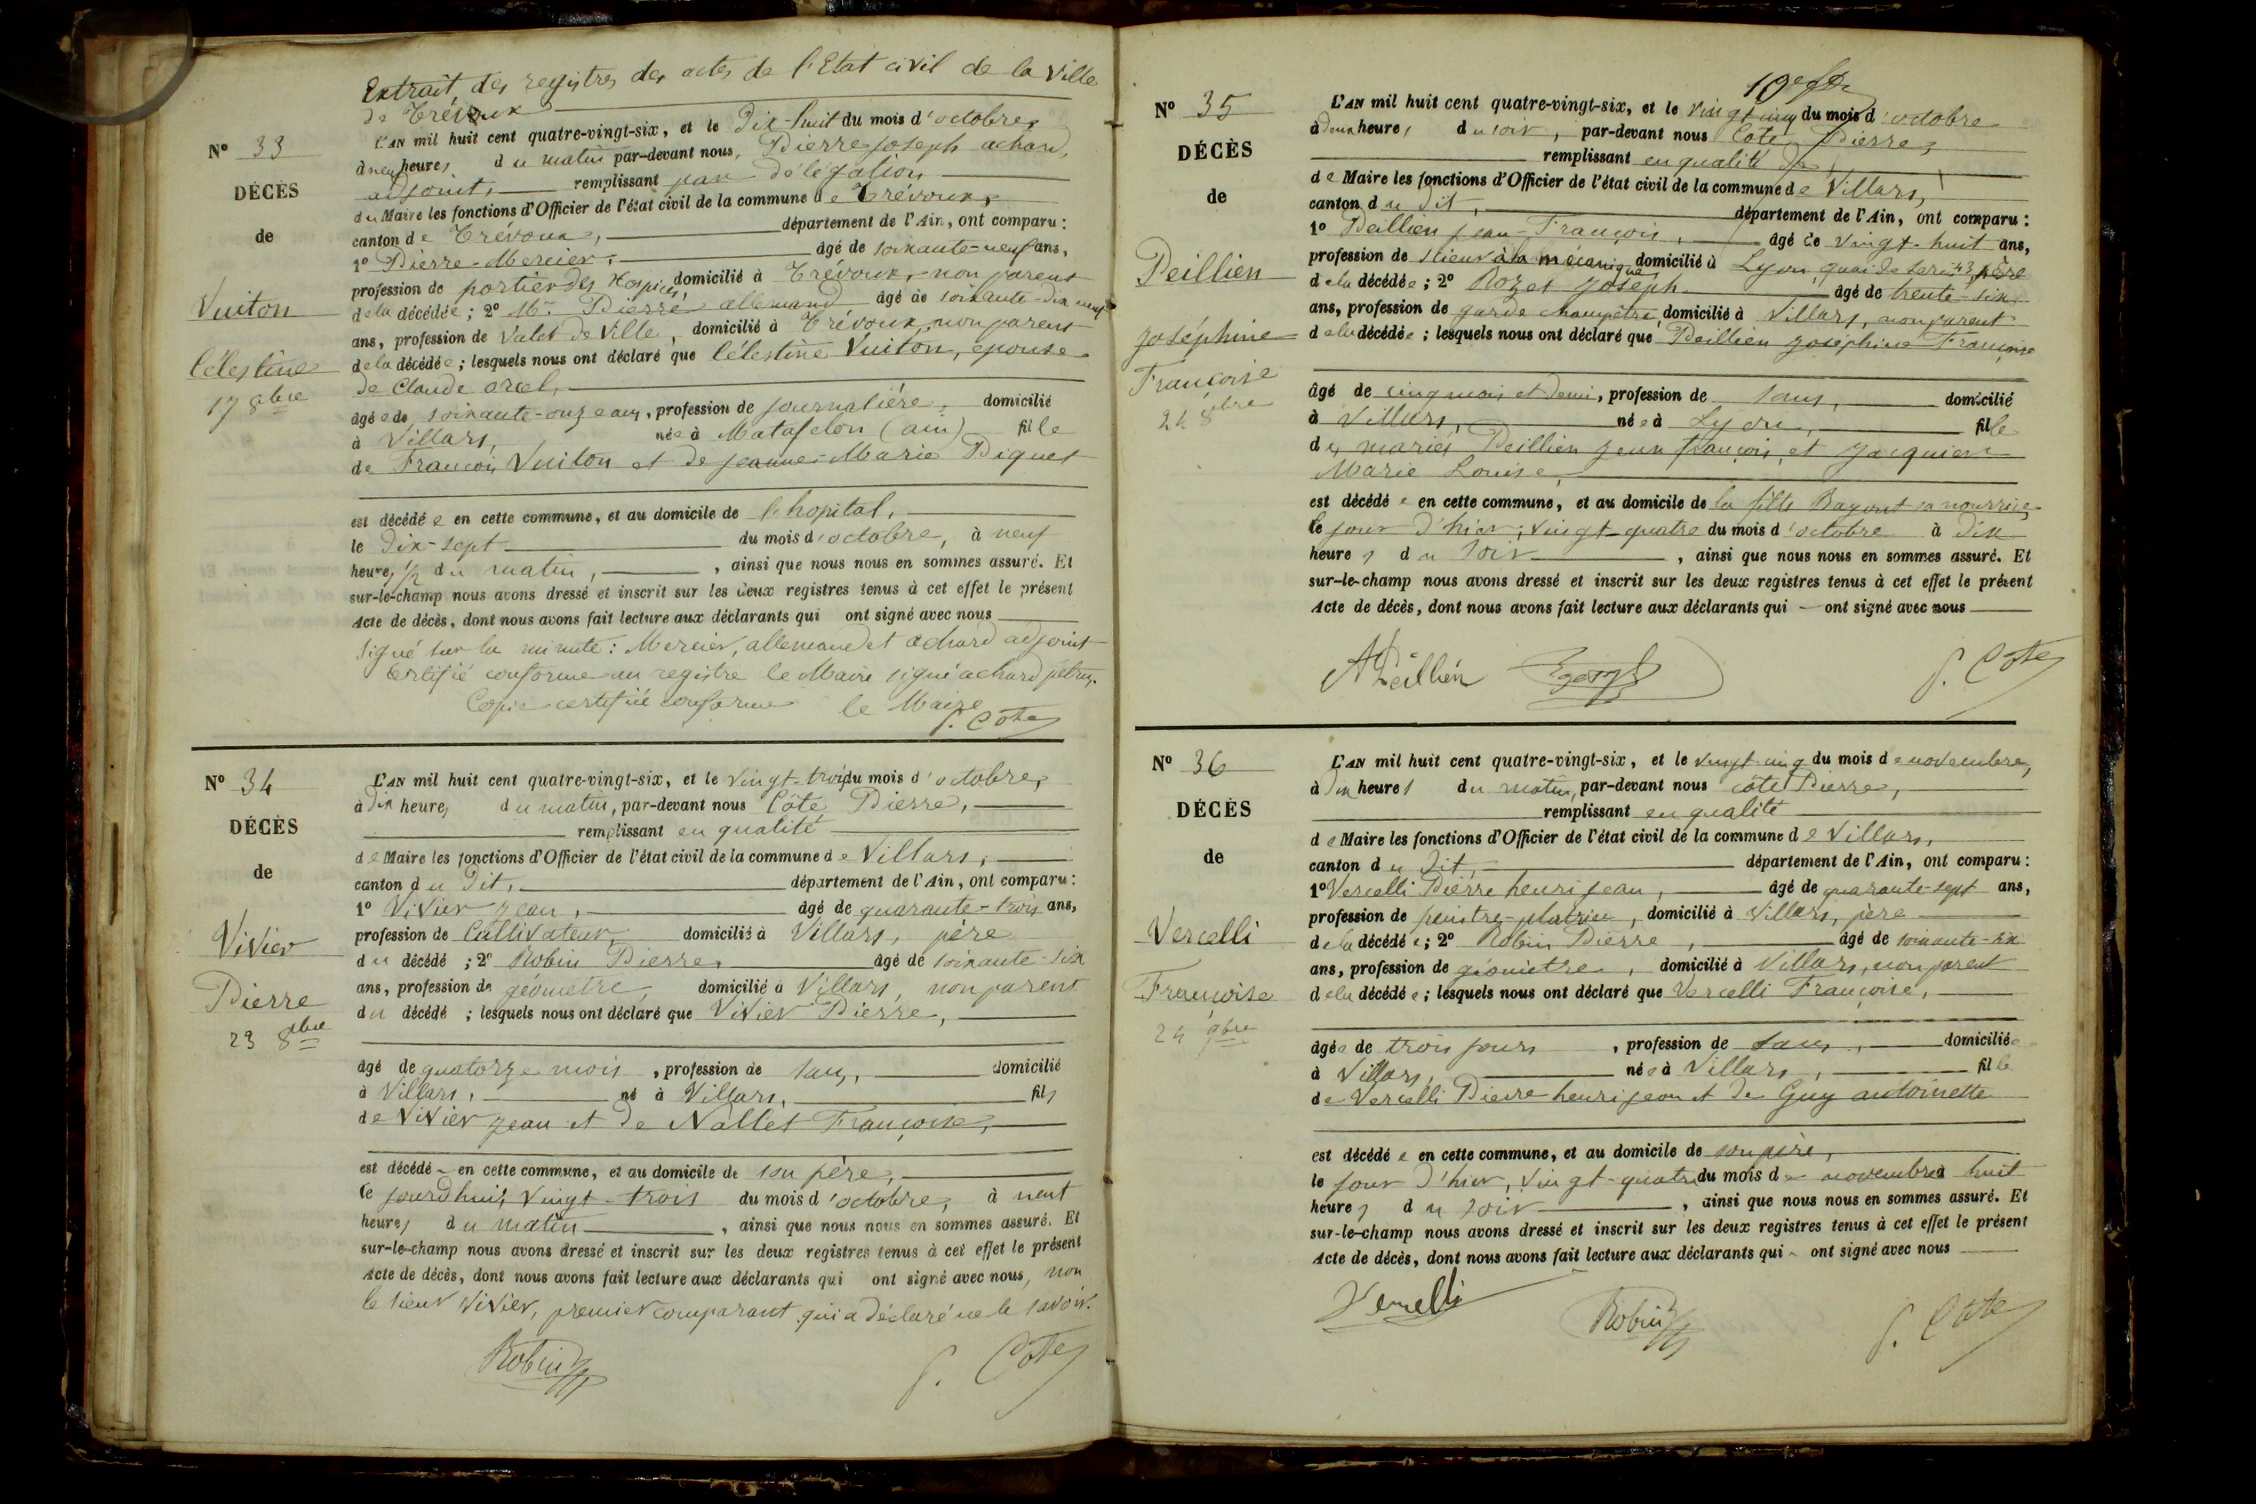 Extrait des registres des actes de l'Etat civil de la ville
de Trévoux
N° 33
L'AN mil huit cent quatre-vingt-six, et le Dix-huit du mois d'octobre,
à neuf heures du matin par-devant nous, Pierre Joseph achard,
DÉCÈS
adjoint, remplissant par délégation
du Maire les fonctions d'Officier de l'état civil de la commune de Trévoux,
de
canton de Trévoux, département de l'Ain, ont comparu :
1° Pierre Mercier, âgé de soixante-neuf ans,
profession de portier des Hospices, domicilié à Trévoux, non parent
Vuiton
de la décédée ; 2° Mr Pierre allemand âgé de soixante-dix neuf
ans, profession de Valet de Ville, domicilié à Trévoux, non parent
de la décédée ; lesquels nous ont déclaré que Célestine Vuiton, épouse
Célestine
de Claude orcel,
17 8bre
âgée de soixante-onze ans, profession de journalière, domicilié
à Villars, née à Matafelon (ain) fille
de François Vuiton et de Jeanne-Marie Piquet
est décédée en cette commune, et au domicile de l'hopital,
le Dix-sept du mois d'octobre, à neuf
heures 1/2 du matin, , ainsi que nous nous en sommes assuré. Et
sur-le-champ nous avons dressé et inscrit sur les deux registres tenus à cet effet le présent
Acte de décès, dont nous avons fait lecture aux déclarants qui ont signé avec nous
signé sur la minute : Mercier, allemand et achard adjoint
Certifié conforme au registre le Maire signé achard
Copie certifiée conforme le Maire
P. Cote
N° 34
L'AN mil huit cent quatre-vingt-six, et le vingt-trois du mois d'octobre,
à dix heures du matin, par-devant nous Côte Pierre,
DÉCÈS
remplissant en qualité
de Maire les fonctions d'Officier de l'état civil de la commune de Villars,
de
canton du dit, département de l'Ain, ont comparu :
1° Vivier Jean, âgé de quarante-trois ans,
profession de Cultivateur, domicilié à Villars, père
Vivier
du décédé ; 2° Robin Pierre, âgé de soixante-six
ans, profession de géomètre, domicilié à Villars, non parent
Pierre
du décédé ; lesquels nous ont déclaré que Vivier Pierre,
23 8bre
âgé de quatorze mois, profession de sans, domicilié
à Villars, né à Villars, fils
de Vivier Jean et de Nallet Françoise,
est décédé en cette commune, et au domicile de son père,
le jourdhui, vingt-trois du mois d'octobre, à neuf
heures du matin , ainsi que nous nous en sommes assuré. Et
sur-le-champ nous avons dressé et inscrit sur les deux registres tenus à cet effet le présent
Acte de décès, dont nous avons fait lecture aux déclarants qui ont signé avec nous, non
le sieur Vivier, premier comparant qui a déclaré ne le savoir.
Robin P. Cote
N° 35
L'AN mil huit cent quatre-vingt-six, et le vingt cinq du mois d'octobre
à deux heures du soir, par-devant nous Cote Pierre,
DÉCÈS
remplissant en qualité
de Maire les fonctions d'Officier de l'état civil de la commune de Villars,
de
canton du dit, département de l'Ain, ont comparu :
1° Peillien Jean-François, âgé de vingt-huit ans,
profession de scieur à la mécanique domicilié à Lyon, quai de 43, père
Peillien
de la décédée ; 2° Rozet Joseph âgé de trente-six
ans, profession de garde champêtre, domicilié à Villars, non parent
Joséphine
de la décédée ; lesquels nous ont déclaré que Peillien Joséphine Françoise
Françoise
24 8bre
âgé de cinq mois et demi, profession de sans, domicilié
à Villars, née à Lyon, fille
des mariés Peillien Jean françois, et Jacquier
Marie Louise,
est décédée en cette commune, et au domicile de la fille Bayout sa nourrice
le jour d'hier, vingt-quatre du mois d'octobre à dix
heures du soir , ainsi que nous nous en sommes assuré. Et
sur-le-champ nous avons dressé et inscrit sur les deux registres tenus à cet effet le présent
Acte de décès, dont nous avons fait lecture aux déclarants qui ont signé avec nous
Peillien P. Cote
N° 36
L'AN mil huit cent quatre-vingt-six, et le vingt-cinq du mois de novembre,
à dix heures du matin, par-devant nous côte Pierre,
DÉCÈS
remplissant en qualité
de Maire les fonctions d'Officier de l'état civil de la commune de Villars,
de
canton du dit, département de l'Ain, ont comparu :
1° Vercelli Pierre henri jean, âgé de quarante-sept ans,
profession de peintre-platrier, domicilié à Villars, père
Vercelli
de la décédée ; 2° Robin Pierre, âgé de soixante-six
ans, profession de géomètre, domicilié à Villars, non parent
Françoise
de la décédée ; lesquels nous ont déclaré que Vercelli Françoise,
24 9bre
âgée de trois jours, profession de sans, domiciliée
à Villars, née à Villars, fille
de Vercelli Pierre henri jean et de Guy antoinette
est décédée en cette commune, et au domicile de son père,
le jour d'hier, vingt-quatre du mois de novembre à huit
heures du soir , ainsi que nous nous en sommes assuré. Et
sur-le-champ nous avons dressé et inscrit sur les deux registres tenus à cet effet le présent
Acte de décès, dont nous avons fait lecture aux déclarants qui ont signé avec nous
Vercelli Robin P. Cote